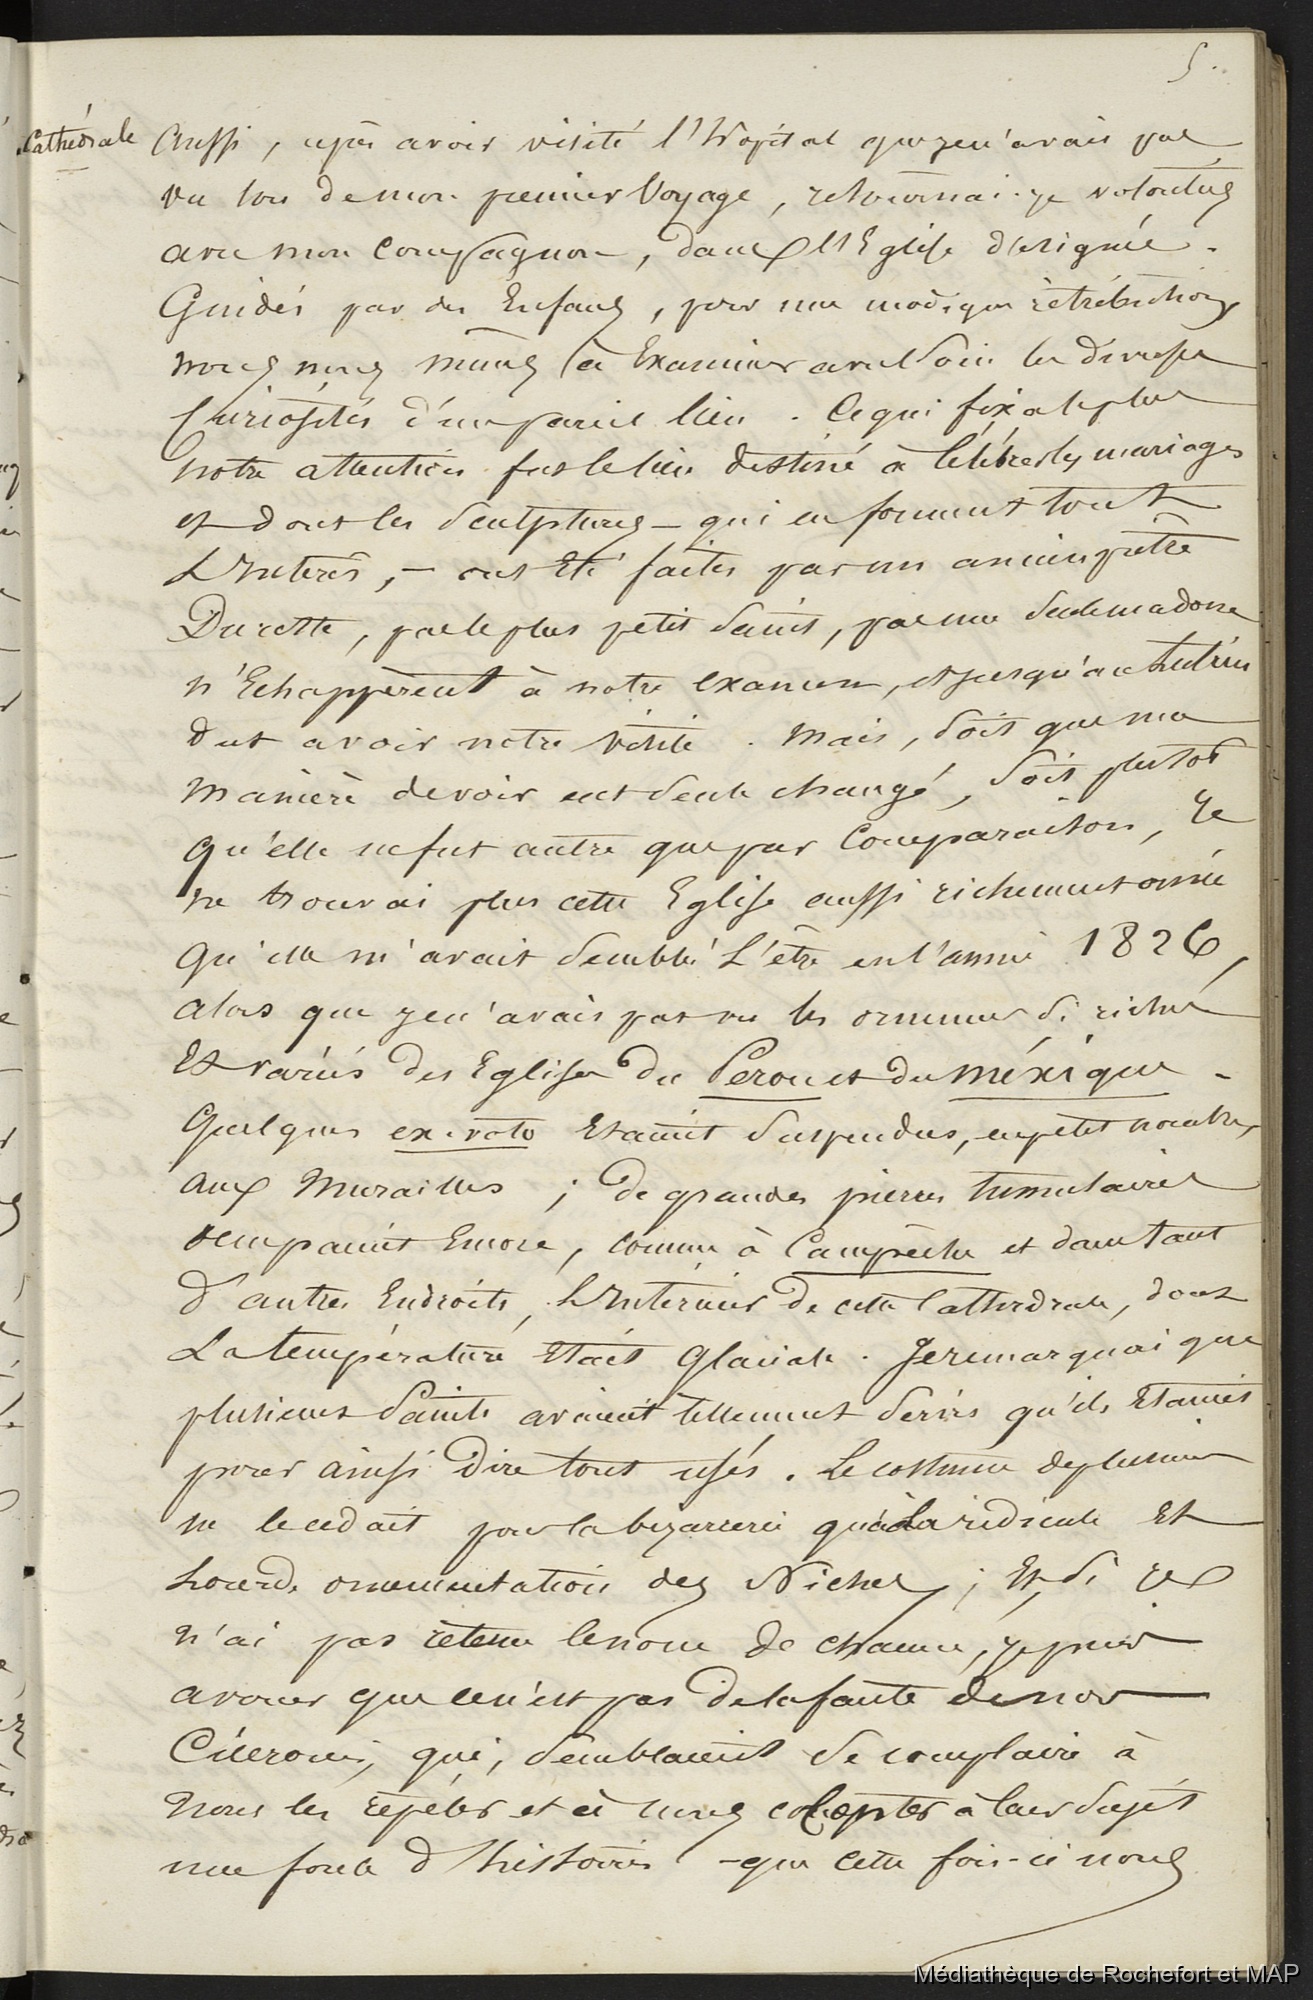 5.
Cathédrale
Aussi, après avoir visité l'hôpital que je n'avais pas
vu lors de mon premier Voyage, retournai-je volontiers
avec mon compagnon, dans l'Eglise désignée.
Guidés par des Enfans, pour une modique rétribution,
nous nous mîmes à Examiner avec Soin les diverses
Curiosités d'un pareil lieu. Ce qui fixa le plus
notre attention fut le lieu destiné à célébrer les mariages
et dont les Sculptures - qui en forment tout
L'Interêt, - ont Eté faites par un ancien prêtre
Du reste, pas le plus petit Saint, pas une Seule madone
n'Echappèrent à notre examen, et jusqu'au lutrin
dut avoir notre visite. Mais, Soit que ma
Manière de voir eut Seule changé, Soit plutot
qu'elle ne fut autre que par Comparaison, Je
ne trouvai plus cette Eglise aussi richement ornée
qu'elle m'avait Semblé L'être en l'année 1826,
alors que je n'avais pas vu les ornemens Si riches
Et variés des Eglises du Perou et du Méxique.
Quelques ex-voto Etaient Suspendus, en petit nombre,
aux Murailles ; de grandes pierres tumulaires
occupaient Encore, comme à Campêche et dans tant
d'autres Endroits, L'Intérieur de cette Cathédrale, dont
La température Etait Glaciale. Je remarquai que
plusieurs Saints avaient tellement Servis qu'ils Etaient
pour ainsi Dire tout usés. Le costume de plusieurs
ne le cedait pour la bizarrerie qu'à la ridicule Et
lourde ornementation des Niches ; Et, Si je
n'ai pas retenu le nom de chacun, je puis
avouer que ce n'est pas de la faute de nos
Cicerones, qui, Semblaient Se complaire à
Nous les répéter et à nous conter à leur Sujet
une foule d'histoires - que cette fois-ci nous
Médiathèque de Rochefort et MAP